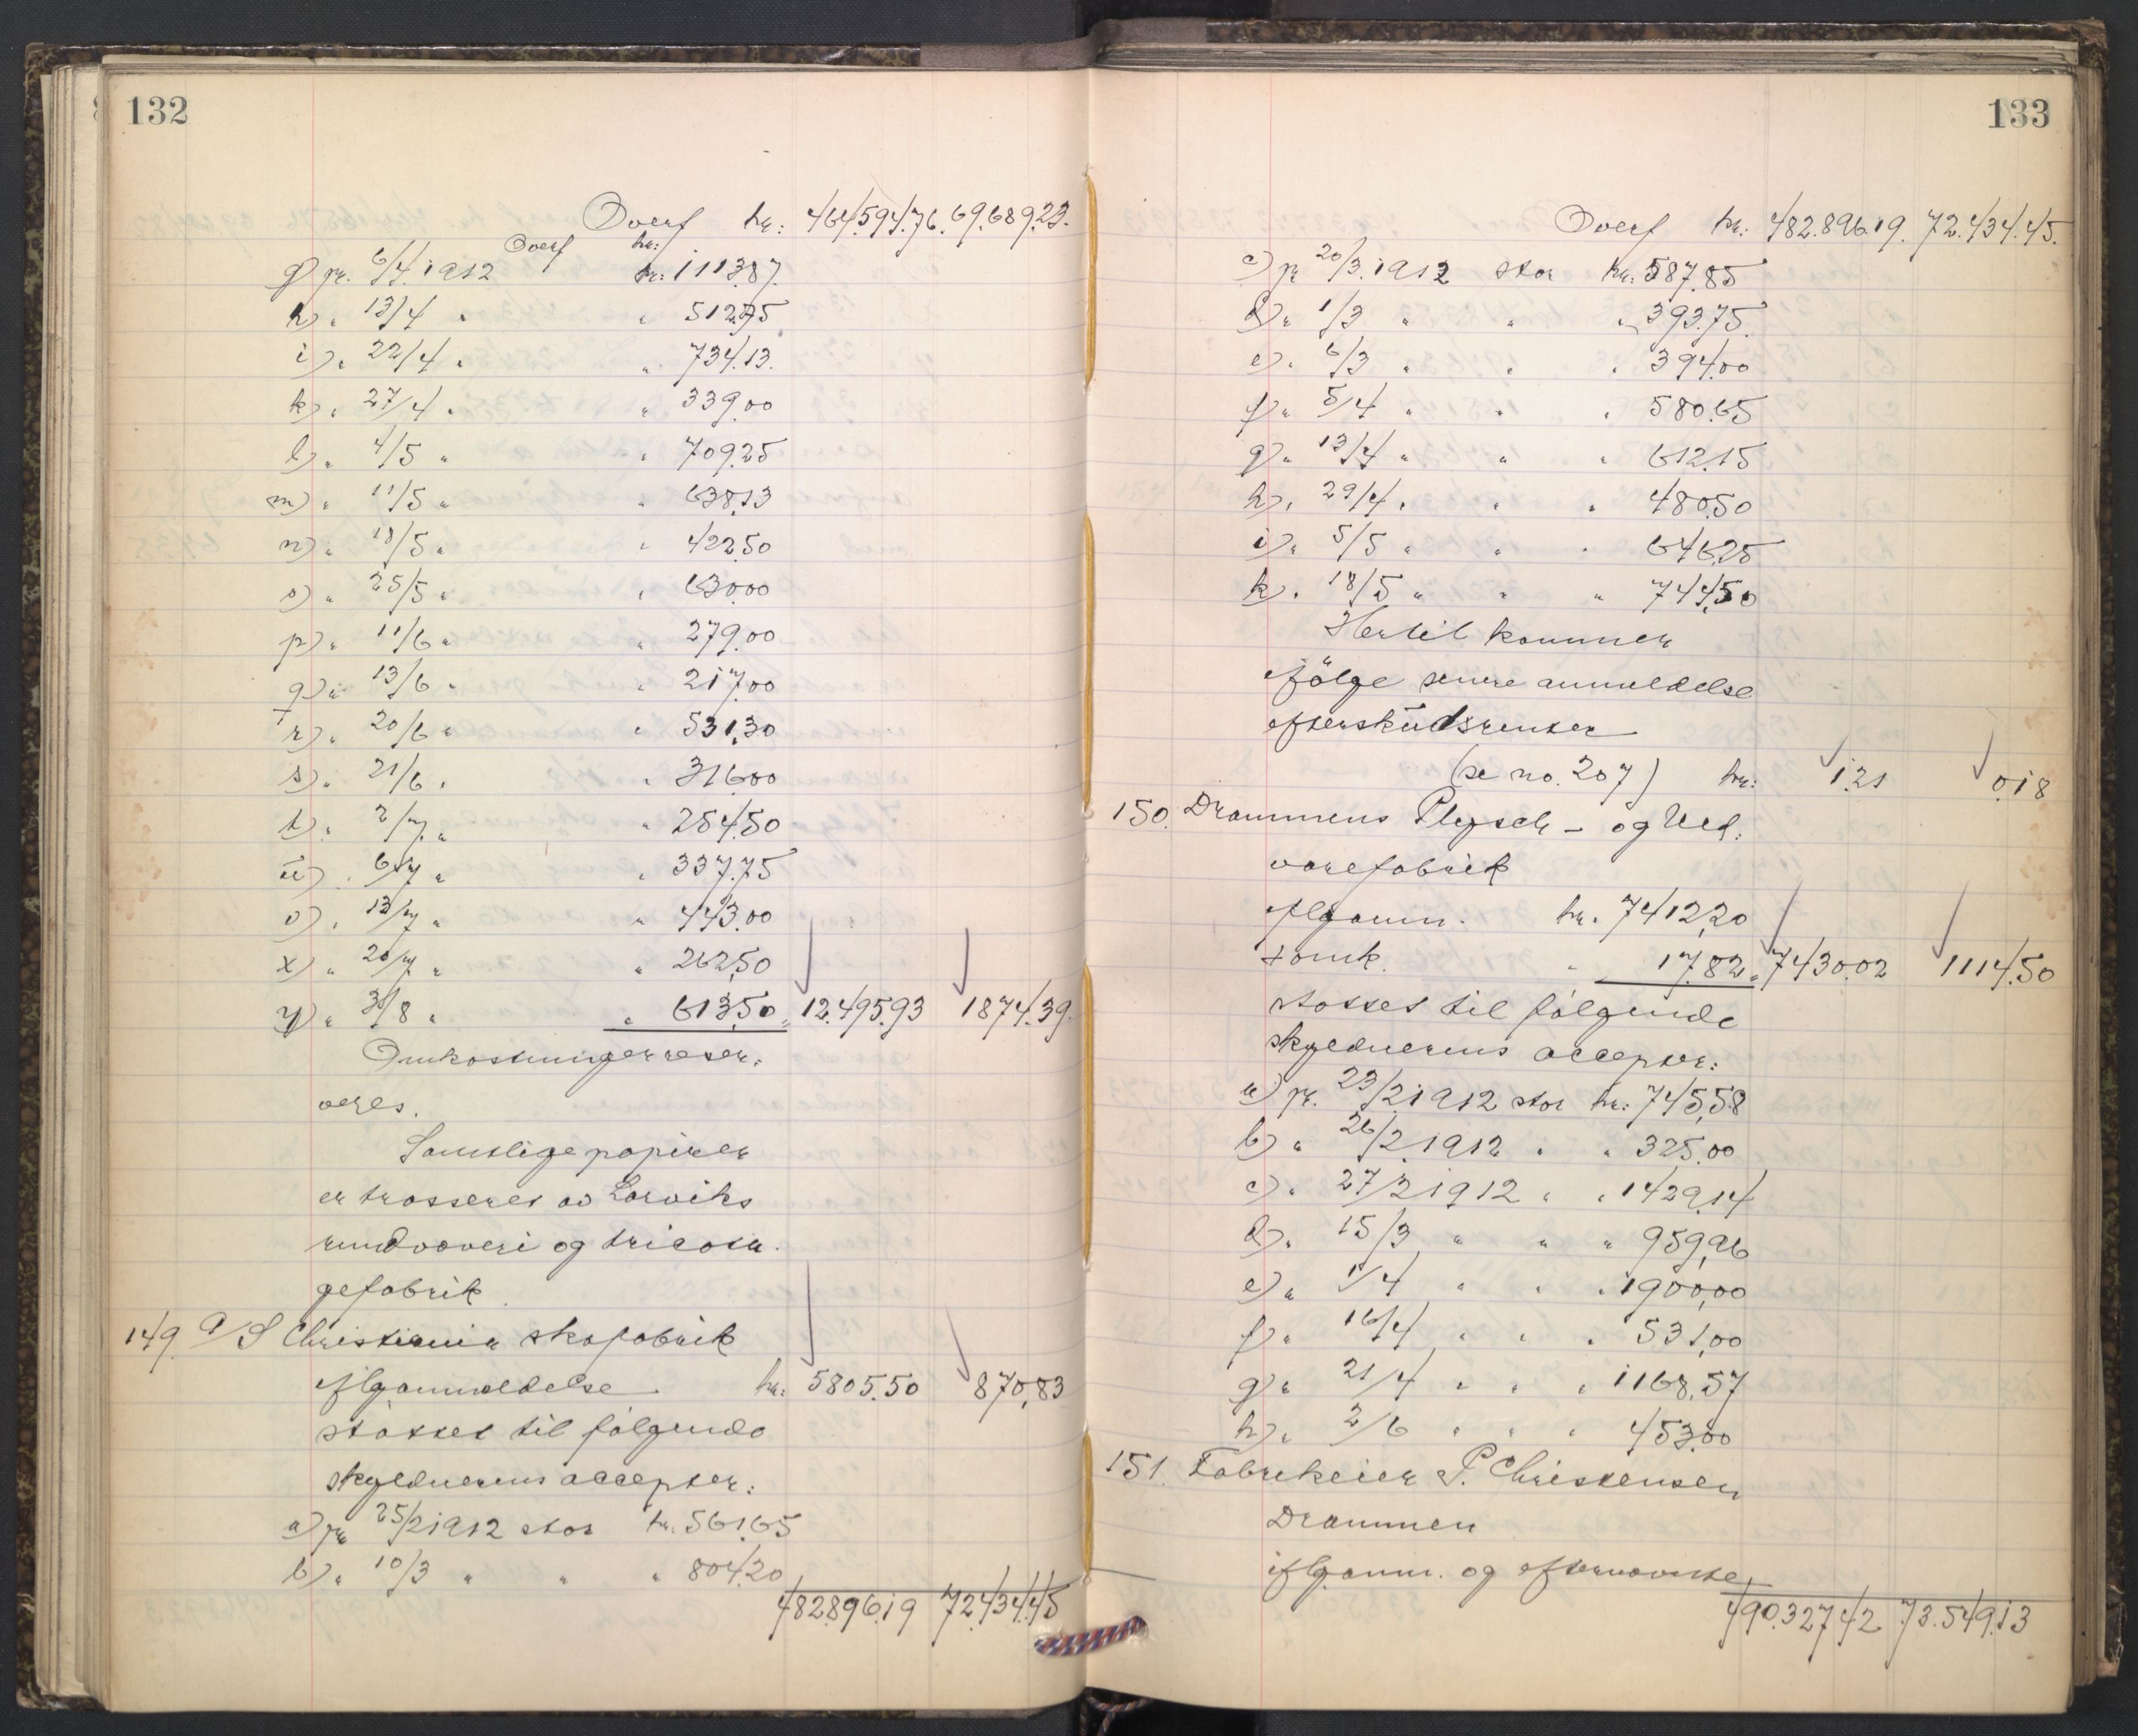 132
Overf kr: 464.594.76. 69.689.23.
Overf kr:
g) pr. 6/4.1912 kr: 1113.87.
h) " 13/4 " " 512.75
i) " 22/4 " " 734.13.
k) " 27/4 " " 339.00
l) " 4/5 " " 709.25
m) " 11/5 " " 638.13
n) " 18/5 " " 422.50
o) " 25/5 " " 630.00
p) " 11/6 " " 279.00
q) " 13/6 " " 217.00
r) " 20/6 " " 531.30
s) " 21/6 " " 316.00
t) " 2/7 " " 254.50
u) " 6/7 " " 337.75
v) " 13/7 " " 443.00
x) " 20/7 " " 262.50
y) " 31/8 " " 613.50 " 12.495.93 1874.39.
Omkostninger reser-
veres.
Samtlige papirer
er trasseret av Larviks
rundvæveri og tricota-
gefabrik.
149. A/S Christiania skofabrik
iflg anmeldelse. kr: 5805.50 870,83
støttet til følgende
skyldnerens accepter:
a) pr 25/2 1912 stor kr. 561.65
b) " 10/3 " " " 804.20
482.896.19 72.434.45
133
Overf kr: 482.896.19. 72.434.45.
c) pr 20/3.1912 stor kr: 587.85
d) " 1/3 " " " 393.75.
e) " 6/3 " " " 394.00
f) " 5/4 " " " 580.65
g) " 13/4 " " " 612.15
h) " 29/4 " " " 480.50
i) " 5/5 " " " 646.25
k) " 18/5 " " " 744,50
Hertil kommer
ifølge senere anmeldelse
efterskudsrenter
(se no. 207) kr: 1.21 0.18
150. Drammens Plysch- og Uld-
varefabrik
iflg anm. kr. 7412,20
+ omk. " 17.82 " 7430.02 1114.50
støttet til følgende
skyldnerens accepter:
a) pr. 23/2 1912 stor kr: 745,58
b) " 26/2.1912 " " 325.00
c) " 27/2 1912 " " 1429,14
d) " 15/3 " " " 959,96
e) " 1/4 " " " 1900,00
f) " 16/4 " " " 531,00
g) " 21/4 " " " 1168,57
h) " 2/6 " " " 453.00
151. Fabrikeier P. Christensen
Drammen
iflg anm. og
490.327.42 73.549.13